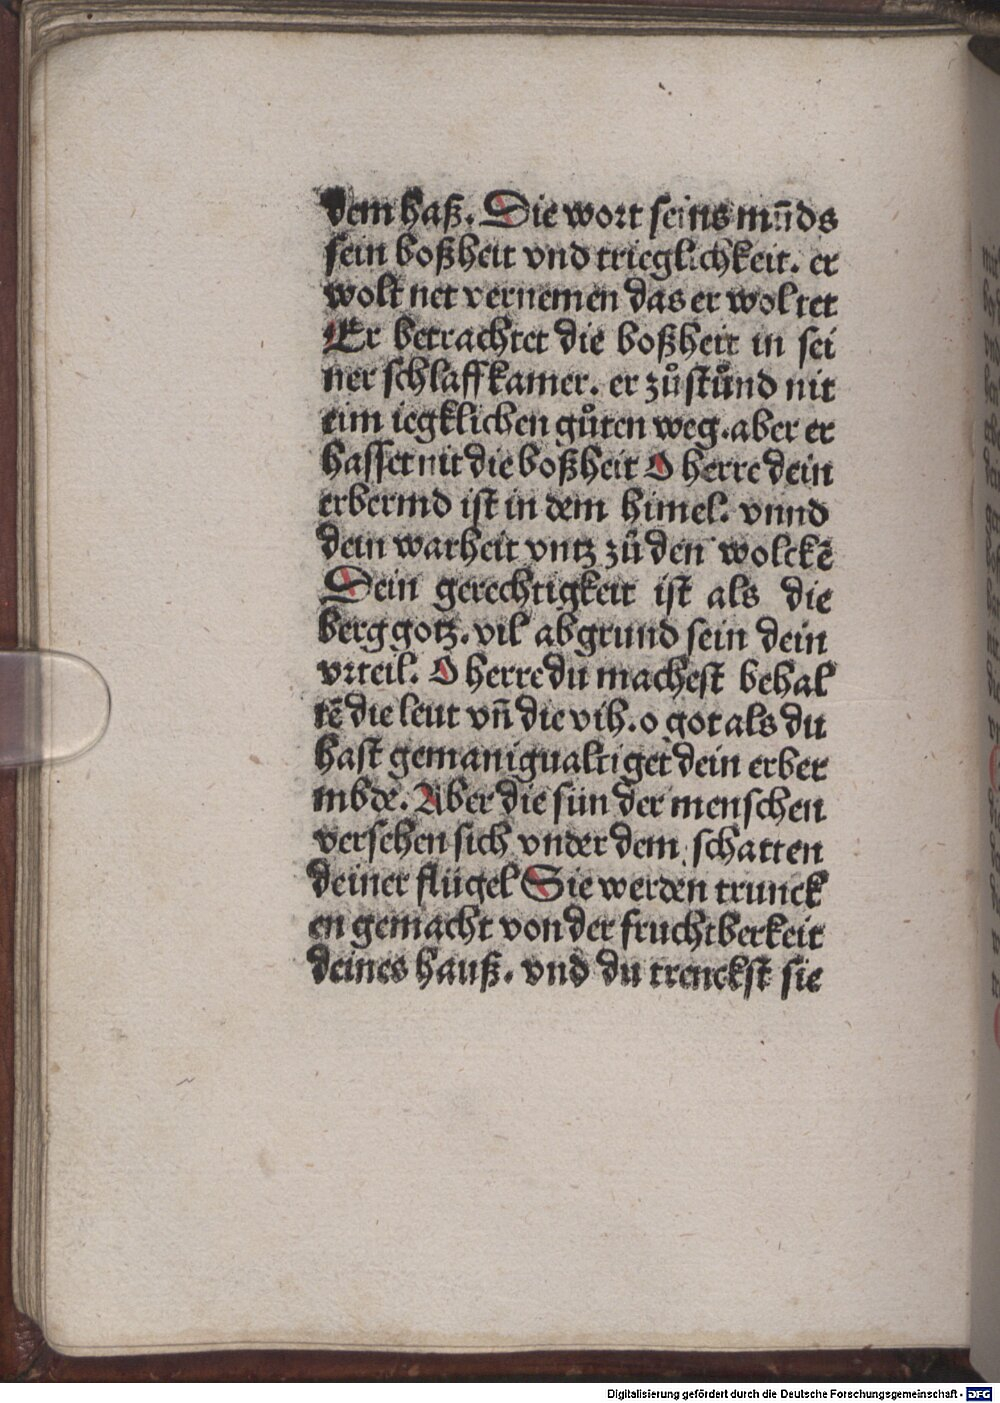 dem haß. Die wort seins mu̅ds
sein boßheit vnd trieglichkeit. er
wolt net vernemen das er wol tet
Er betrachtet die boßheit in sei
ner schlaffkamer. er zůstůnd nit
eim iegklichen gůten weg. aber er
hasset nit die boßheit O herre dein
erbermd ist in dem himel. vnnd
dein warheit vntz zů den wolckē
Dein gerechtigkeit ist als die
berg gotz. vil abgrund sein dein
vrteil. O herre du machest behal
tē die leut vn̄ die vih. o got als du
hast gemanigualtiget dein erber
mbde. Aber die sün der menschen
versehen sich vnder dem schatten
deiner flügel Sie werden trunck
en gemacht von der fruchtberkeit
deines hauß. vnd du trenckst sie
Digitalisierung gefördert durch die Deutsche Forschungsgemeinschaft - DFG